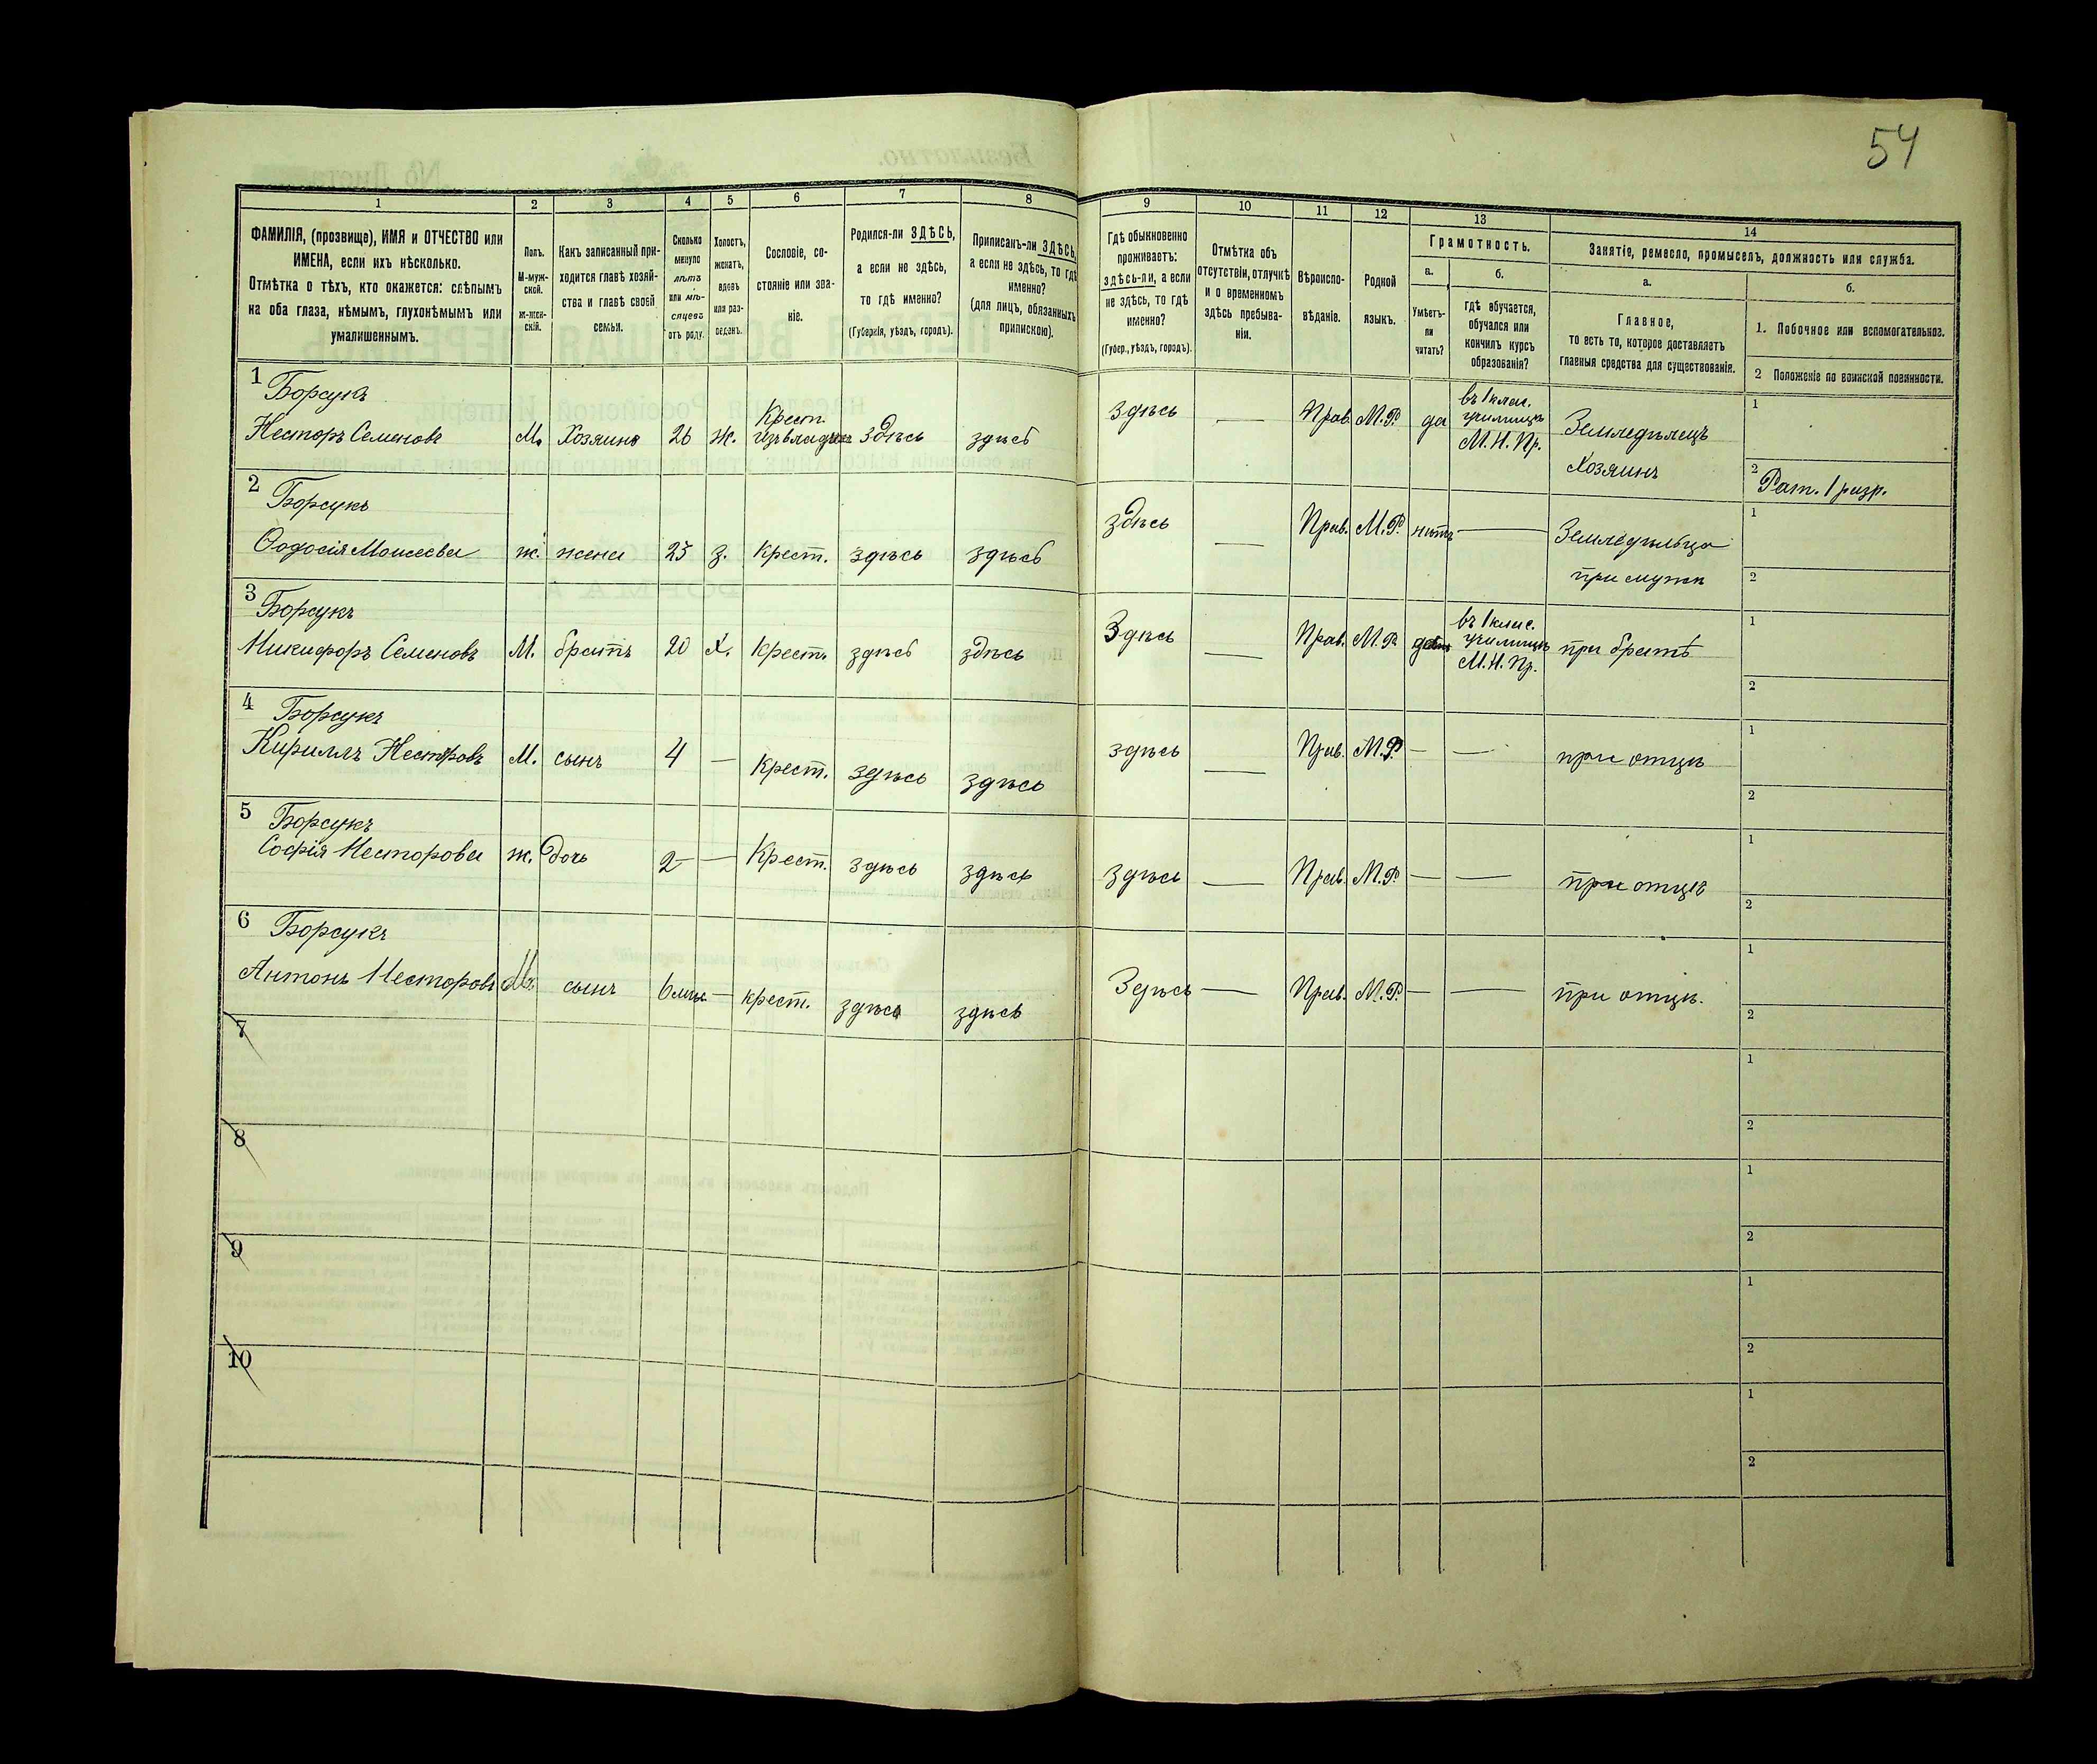 54
1 2 3 4 5 6 7 8 9 10 11 12 13 14
ФАМИЛІЯ, (прозвище), ИМЯ и ОТЧЕСТВО или
ИМЕНА, если ихъ нѣсколько.
Отмѣтка о тѣхъ, кто окажется: слѣпымъ
на оба глаза, нѣмымъ, глухонѣмымъ или
умалишеннымъ.
Полъ.
М-муж-
ской.
Ж-жен-
скій.
Какъ записанный при-
ходится главѣ хозяй-
ства и главѣ своей
семьи.
Сколько
минуло
лѣтъ
или мѣ-
сяцевъ
отъ роду.
Холостъ,
женатъ,
вдовъ
или раз-
веденъ.
Сословіе, со-
стояніе или зва-
ніе.
Родился-ли ЗДѢСЬ,
а если не здѣсь,
то гдѣ именно?
(Губернія, уѣздъ, городъ).
Приписанъ-ли ЗДѢСЬ,
а если не здѣсь, то гдѣ
именно?
(для лицъ, обязанныхъ
припискою).
Гдѣ обыкновенно
проживаетъ:
здѣсь-ли, а если
не здѣсь, то гдѣ
именно?
(Губер., уѣздъ, городъ).
Отмѣтка объ
отсутствіи, отлучкѣ
и о временномъ
здѣсь пребыва-
ніи.
Вѣроиспо-
вѣданіе.
Родной
языкъ.
Грамотность.
а.
Умѣетъ-
ли
читать?
б.
гдѣ обучается,
обучался или
кончилъ курсъ
образованія?
Занятіе, ремесло, промыселъ, должность или служба.
а.
Главное,
то есть то, которое доставляетъ
главныя средства для существованія.
б.
1. Побочное или вспомогательное.
2 Положеніе по воинской повинности.
1 Борсукъ
Несторъ Семеновъ М. Хозяинъ 26 ж. Крест. изъ владѣл. здѣсь здѣсь
здѣсь — Прав. М.Р. да въ 1 клас. училищѣ М. Н. Пр. Земледѣлецъ Хозяинъ
1
2 Рат. 1 разр.
2 Борсукъ
Ѳодосія Моисеева ж. жена 25 з. крест. здѣсь здѣсь
здѣсь — Прав. М.Р. нѣтъ — Земледѣлица при мужѣ
1
2
3 Борсукъ
Никифоръ Семеновъ М. братъ 20 х. крест. здѣсь здѣсь
здѣсь — Прав. М.Р. да въ 1 клас. училищѣ М. Н. Пр. при братѣ
1
2
4 Борсукъ
Кириллъ Нестеровъ М. сынъ 4 — крест. здѣсь здѣсь
здѣсь — Прав. М.Р. — — при отцѣ
1
2
5 Борсукъ
Софія Несторова ж. дочь 2 — Крест. здѣсь здѣсь
здѣсь — Прав. М.Р. — — при отцѣ
1
2
6 Борсукъ
Антонъ Несторовъ М. сынъ 6 мѣс — крест. здѣсь здѣсь
Здѣсь — Прав. М.Р. — — при отцѣ.
1
2
7
1
2
8
1
2
9
1
2
10
1
2